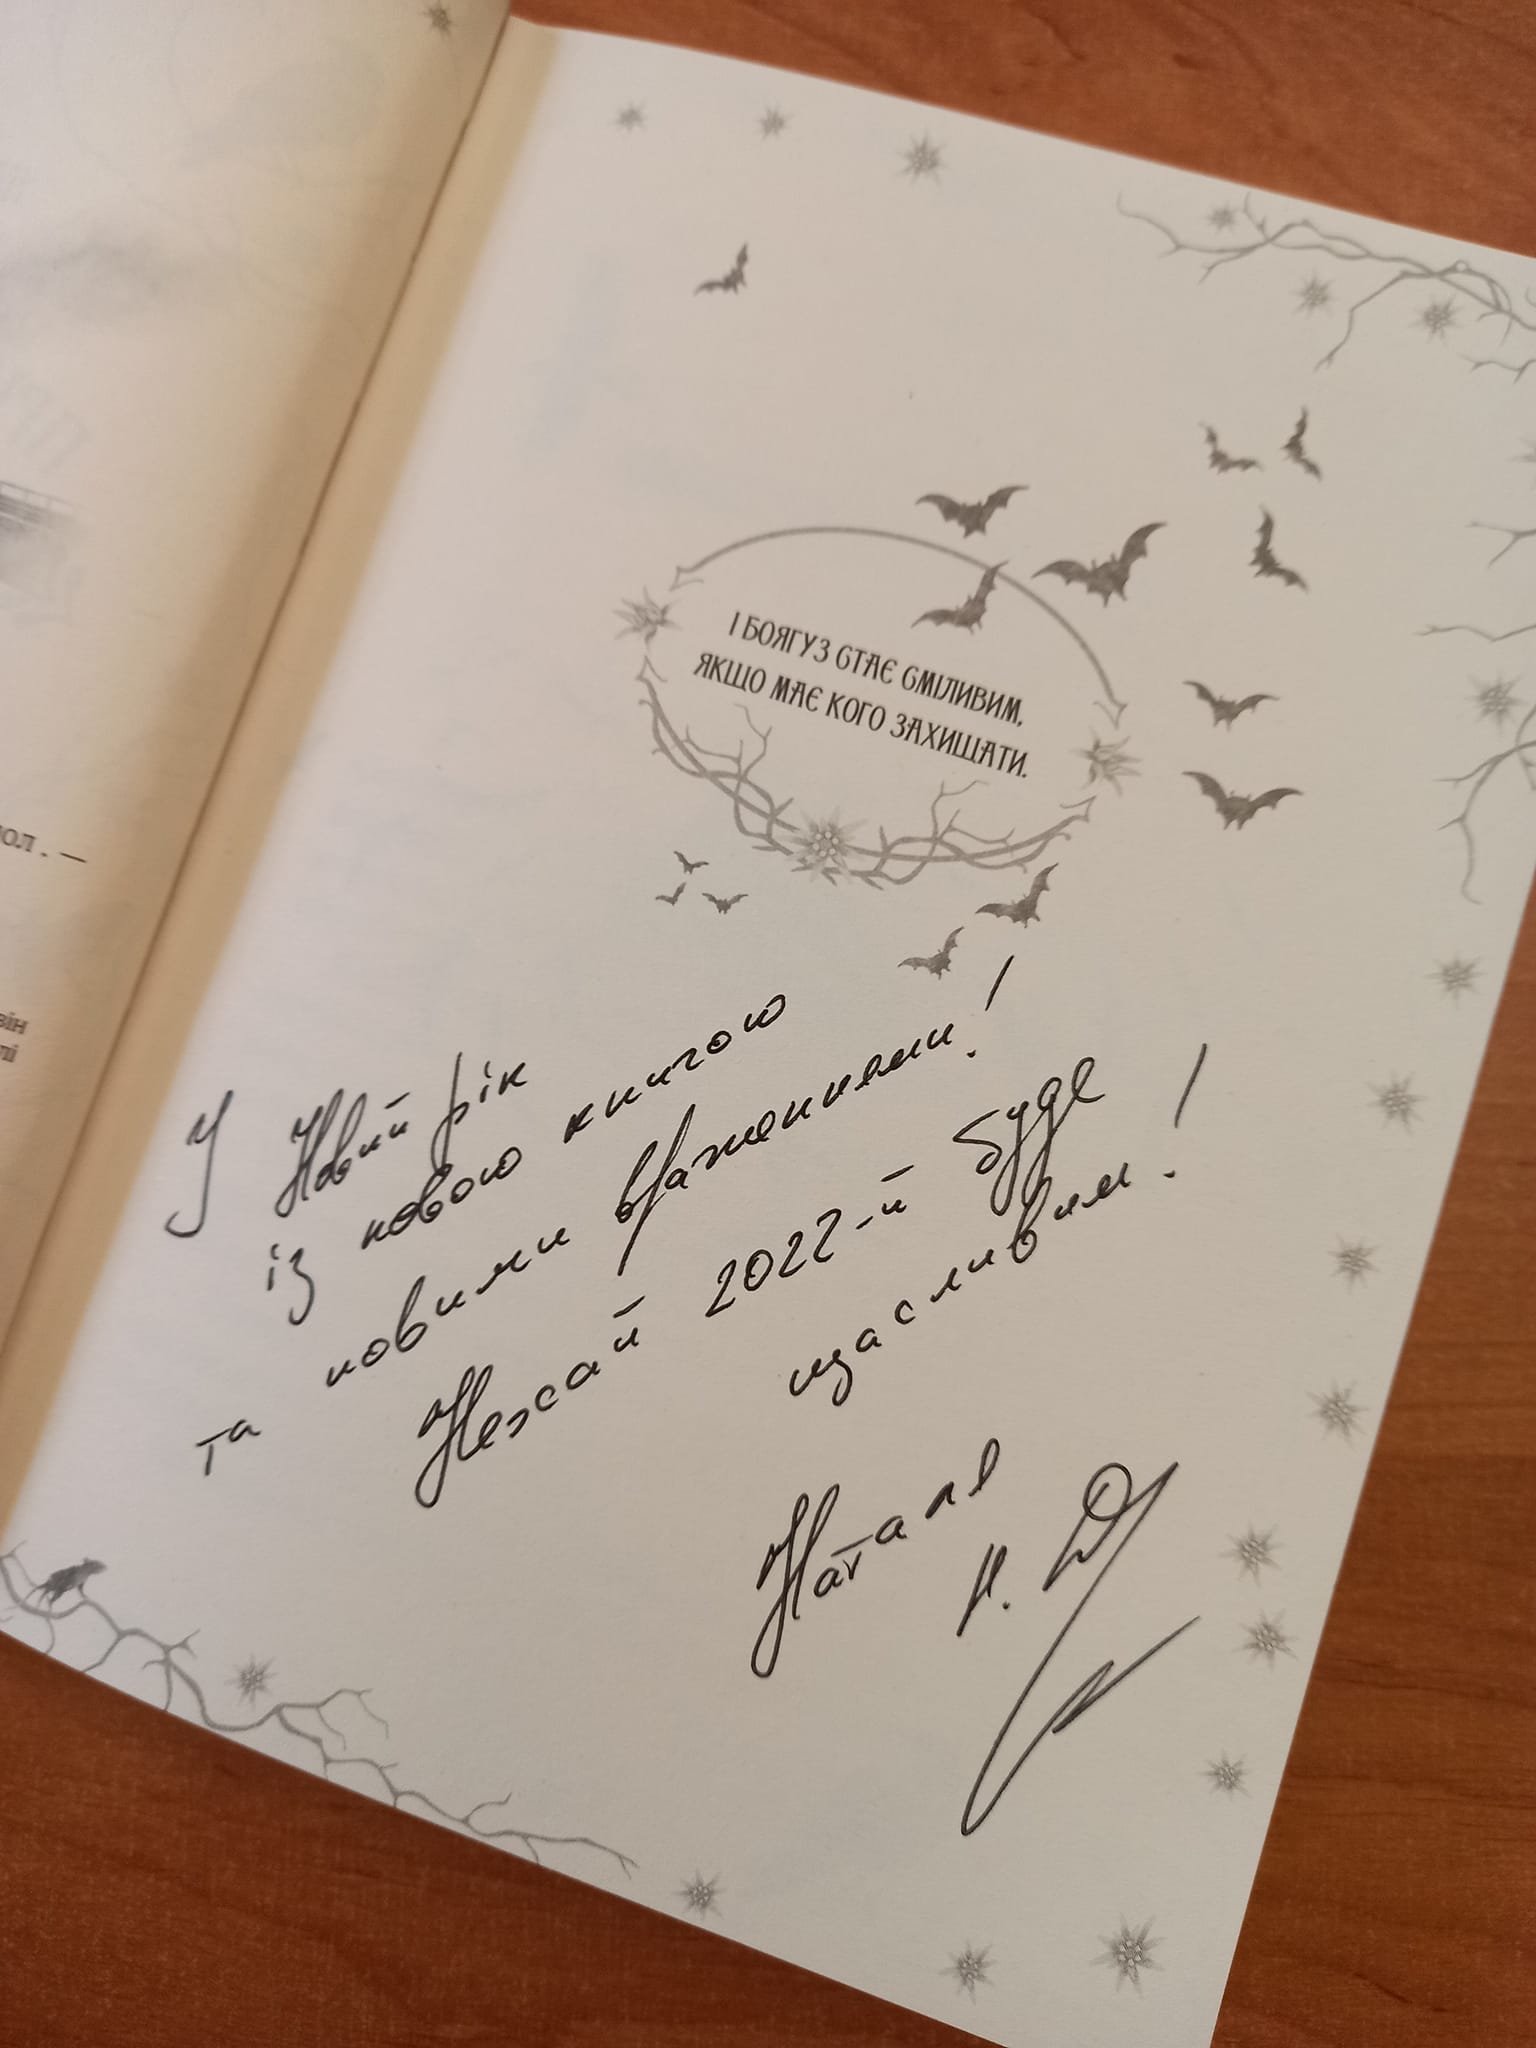 пол . —
він
лі
І БОЯГУЗ СТАЄ СМІЛИВИМ,
ЯКЩО МАЄ КОГО ЗАХИЩАТИ.
У Новий рік
із новою книгою
та новими враженнями!
Нехай 2022-й буде
щасливим!
Наталя
Н. Д